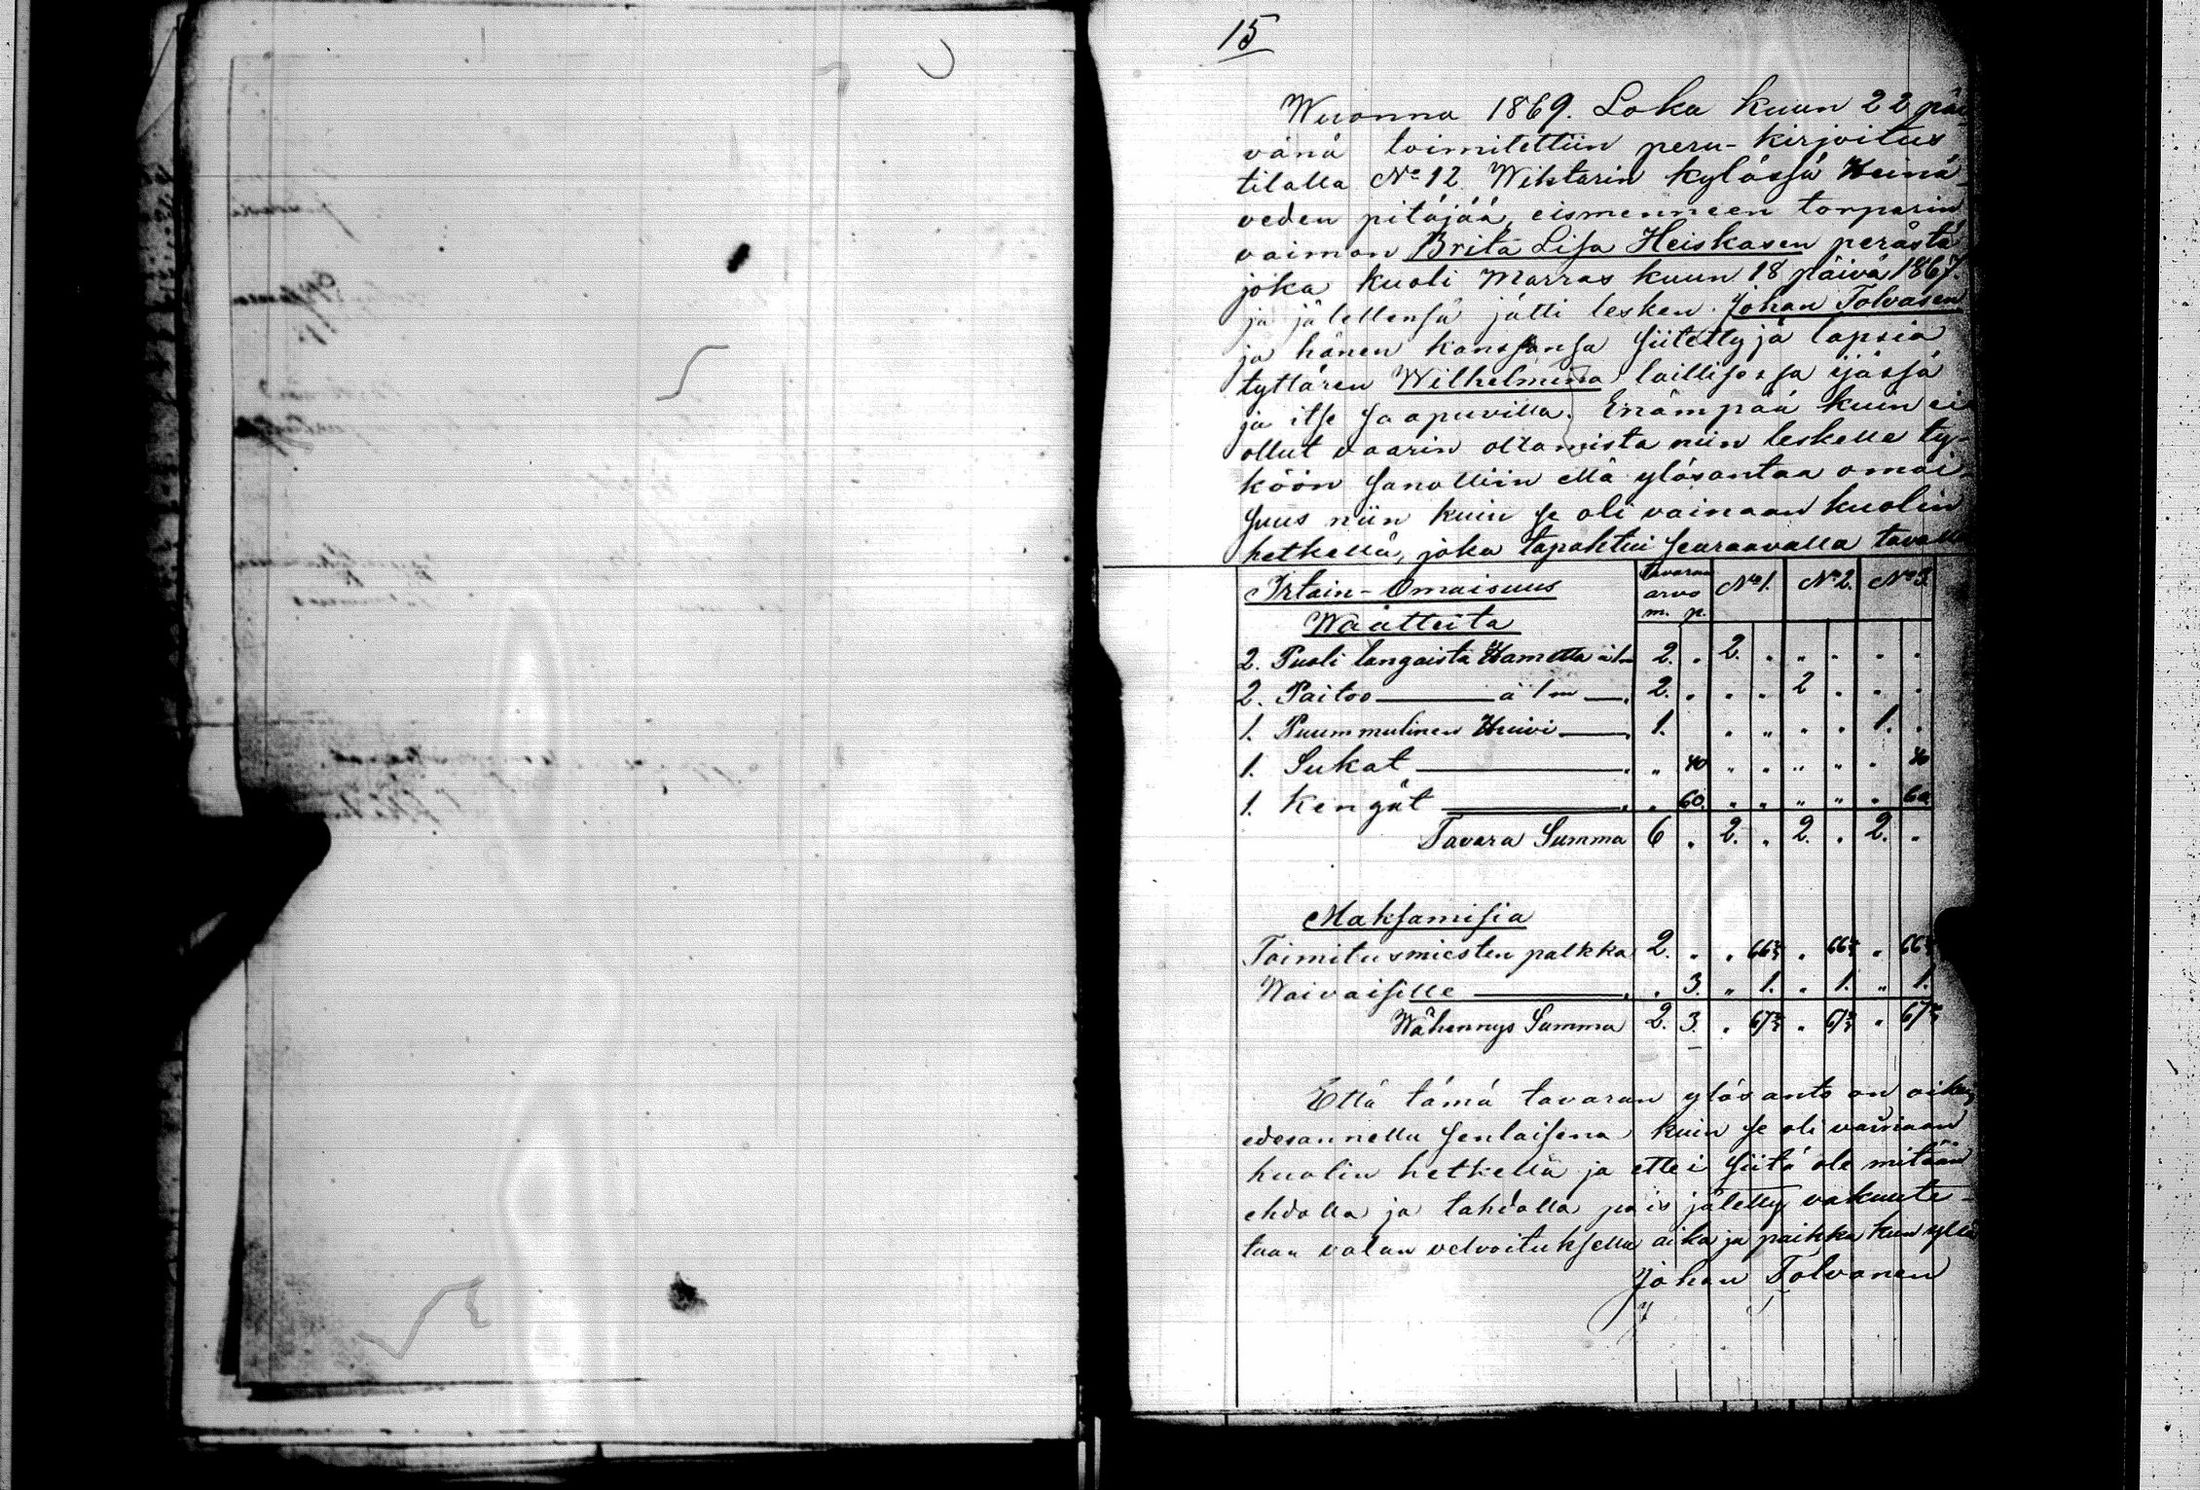 15
Wuonna 1869. Loka kuun 22 päi-
vänä toimitettiin peru-kirjoitus
tilalla No 12 Wihtarin kylässä Heinä-
veden pitäjää, eismenneen torparin
vaimon Brita Lisa Heiskasen perästä
joka kuoli Marras kuun 18 päivä 1867.
ja jälellensä jätti lesken Johan Tolvasen
ja hänen kanssansa siitettyjä lapsia
tyttären Wilhelmina laillisessa ijässä
ja itse saapuvilla. Enämpää kuin ei
ollut vaarin ottamista niin leskelle ty-
köön sanottiin että ylösantaa omai-
suus niin kuin se oli vainaan kuolin
hetkellä, joka tapahtui seuraavalla tavalla
Irtain-Omaisuus Tavaran arvo m. p. No 1. No 2. No 3.
Waatteita
2. Puoli langaista Hametta à 1m 2. „ 2. „ „ „ „ „
2. Paitoo à 1m 2. „ „ „ 2 „ „ „
1. Puummulinen Huivi 1. „ „ „ „ „ 1. „
1. Sukat „ 40 „ „ „ „ „ 40
1. Kengät „ 60 „ „ „ „ „ 60
Tavara Summa 6 „ 2. „ 2. „ 2. „
Maksamisia
Toimitusmiesten palkka 2. „ „ 66⅔ „ 66⅔ „ 66⅔
Waivaisille „ 3. „ 1. „ 1. „ 1.
Wähennys Summa 2. 3. „ 67⅔ „ 67⅔ „ 67⅔
Että tämä tavaran ylösanto on oikein
edesannettu senlaisena kuin se oli vainaan
kuolin hetkellä ja ettei siitä ole mitään
ehdolla ja tahdolla pois jätetty vakuute-
taan valan velvoituksella aika ja paikka kun yllä
Johan Tolvanen